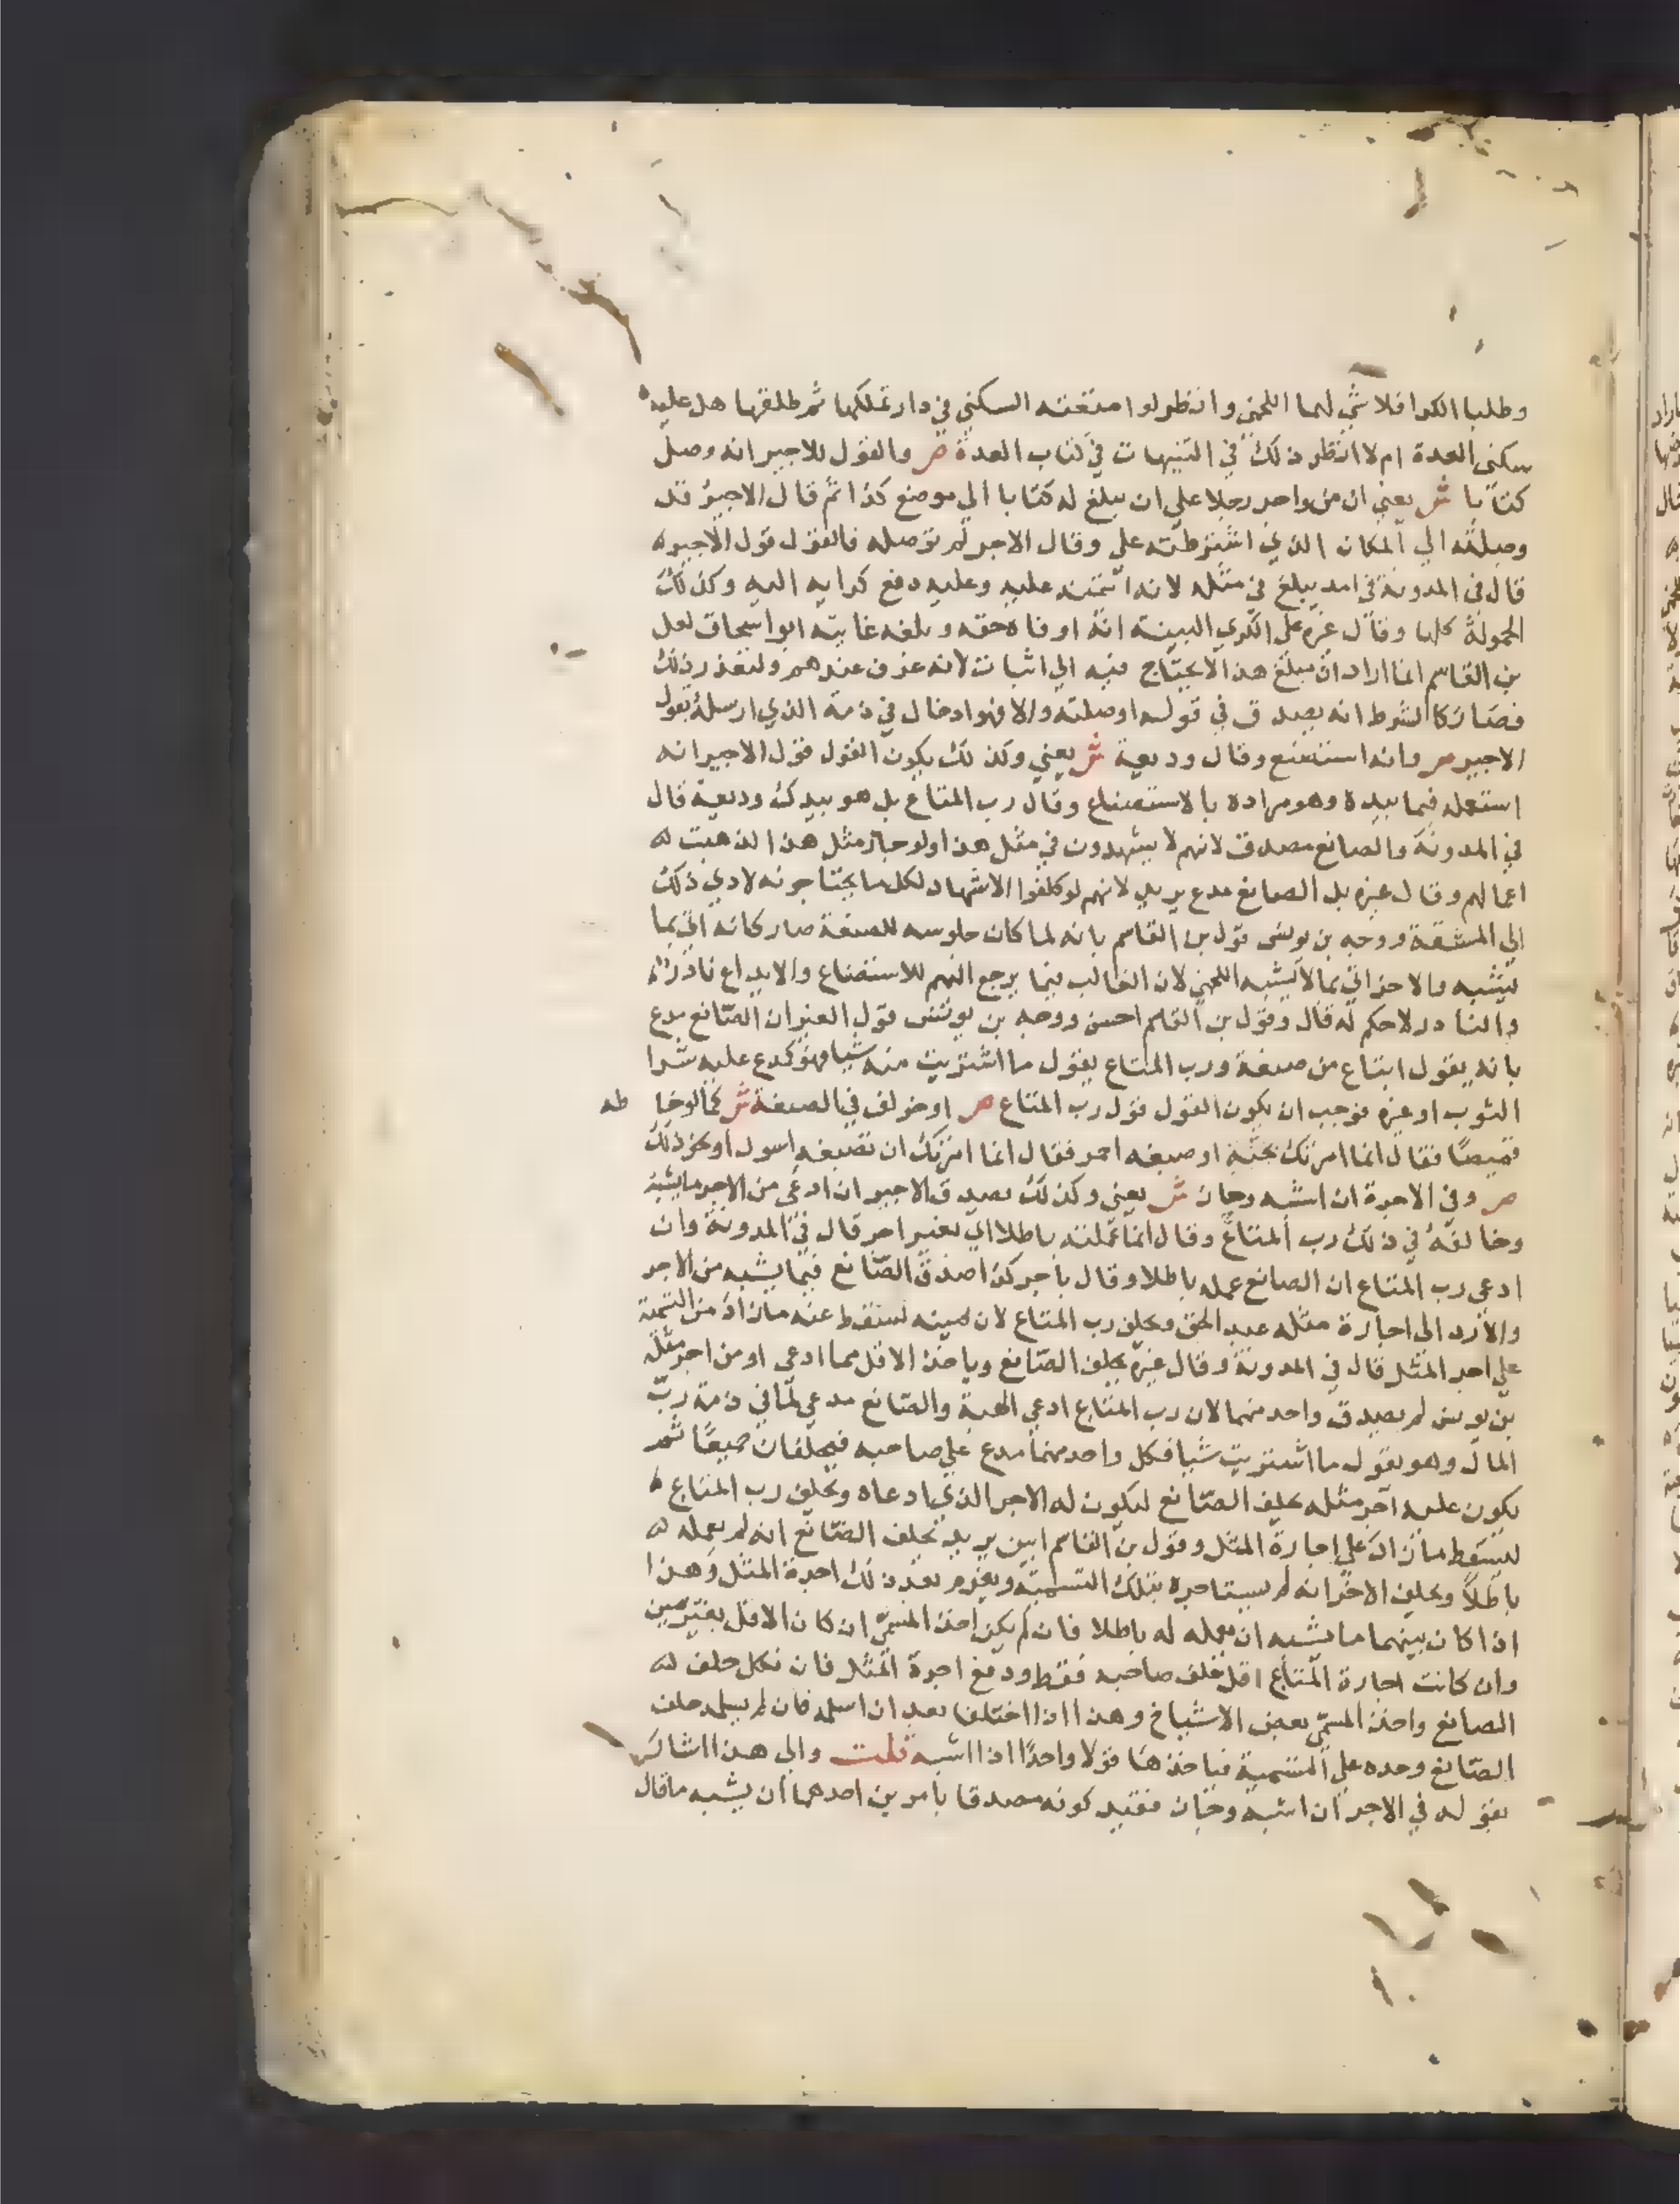 وطلبا الكرا فلا شي لهما اللخمي وانظر لو امتعته السكني في دار تملكها ثم طلقها هل عليه
سكني العدة ام لا انظر ذلك في التنبيهات في كتاب العدة ص والقول للاجير انه وصل
كتابا ش يعني ان من واجر رجلا علي ان يبلغ له كتابا الي موضع كذا ثم قال الاجير قد
وصلته الي المكان الذي اشترطته علي وقال الاجر لم توصله فالقول قول الاجير
قال في المدونة في امد يبلغ في مثله لانه ائتمنه عليه وعليه دفع كرايه اليه وكذلك
الحمولة كلها وقال غيره علي الكري البينة انه اوفاه حقه وبلغه غايته ابو اسحاق لعل
بن القاسم انما اراد ان مبلغ هذا لا يحتاج فيه الي اثبات لانه عرف عندهم ولتعذر ذلك
فصار كالشرط انه يصدق في قوله اوصلته والا فهو ادخال في ذمة الذي ارسله بقول
الاجير ص وانه استصنع وقال وديعة ش يعني وكذلك يكون القول قول الاجير انه
استعمله فيما بيده وهو مراده بالاستصناع وقال رب المتاع بل هو بيدك وديعة قال
في المدونة والصانع مصدق لانهم لا يشهدون في مثل هذا ولو جاز مثل هذا لذهبت له
اعمالهم وقال غيره بل الصانع مدع يريد لانهم لو كلفوا الاشهاد لكل ما يحتاجونه لادي ذلك
الي المشقة ووجه بن يونس قول بن القاسم بانه لما كان جلوسه للصنعة صار كانه اتي بما
يشبه والاخر اتي بما لا يشبه اللخمي لان الغالب فيما يرجع اليهم للاستصناع والايداع نادر
والنادر لا حكم له قال وقول بن القاسم احسن ووجه بن يونس قول الغير ان الصانع مدع
بانه يقول ابتاع من صنعة ورب المتاع يقول ما اشتريت منه شيا فهو كمدع عليه شرا
الثوب او غيره فوجب ان يكون القول قول رب المتاع ص او خولف في الصنعة ش كما لو خا طه
قميصا فقال انما امرتك بجبة او صبغه احمر فقال انما امرتك ان تصبغه اسود او نحو ذلك
ص وفي الاجرة ان اشبه وحاز ش يعني وكذلك يصدق الاجير ان ادعي من الاجر ما يشبه
وخالفه في ذلك رب المتاع وقال انما عملته باطلا اي بغير اجر قال في المدونة وان
ادعي رب المتاع ان الصانع عمله باطلا وقال باجر كذا صدق الصانع فيما يشبه من الاجر
والا رد الي اجارة مثله عبد الحق ويحلف رب المتاع لان يمينه تسقط عنه ما زاد من التسمية
علي اجر المثل قال في المدونة وقال غيره يحلف الصانع وياخذ الاقل مما ادعي او من اجر مثله
بن يونس لم يصدق واحد منهما لان رب المتاع ادعي الهبة والصانع مدعي لما في ذمة رب
المال وهو يقول ما اشتريت شيا فكل واحد منهما مدع علي صاحبه فيحلفان جميعا ثم
يكون عليه اجر مثله يحلف الصانع ليكون له الاجر الذي ادعاه ويحلف رب المتاع
ليسقط ما زاد علي اجارة المثل وقول بن القاسم ابين يريد يحلف الصانع انه لم يعمله له
باطلا ويحلف الاخر انه لم يستاجره بتلك التسمية ويغرم بعد ذلك اجرة المثل وهذا
اذا كان بينهما ما يشبه ان يعمله له باطلا فان لم يكن اخذ المسمي ان كان الاقل بغير يمين
وان كانت اجارة المتاع اقل حلف صاحبه فقط ودفع اجرة المثل فان نكل حلف له
الصانع واخذ المسمي بعض الاشياخ وهذا اذا اختلفا بعد ان اسلمه فان لم يسلمه حلف
الصانع وحده علي التسمية فياخذها قولا واحدا اذا اشبه قلت والي هذا اشار
بقوله في الاجر ان اشبه وحاز فقيد كونه مصدقا بامرين احدهما ان يشبه ما قال